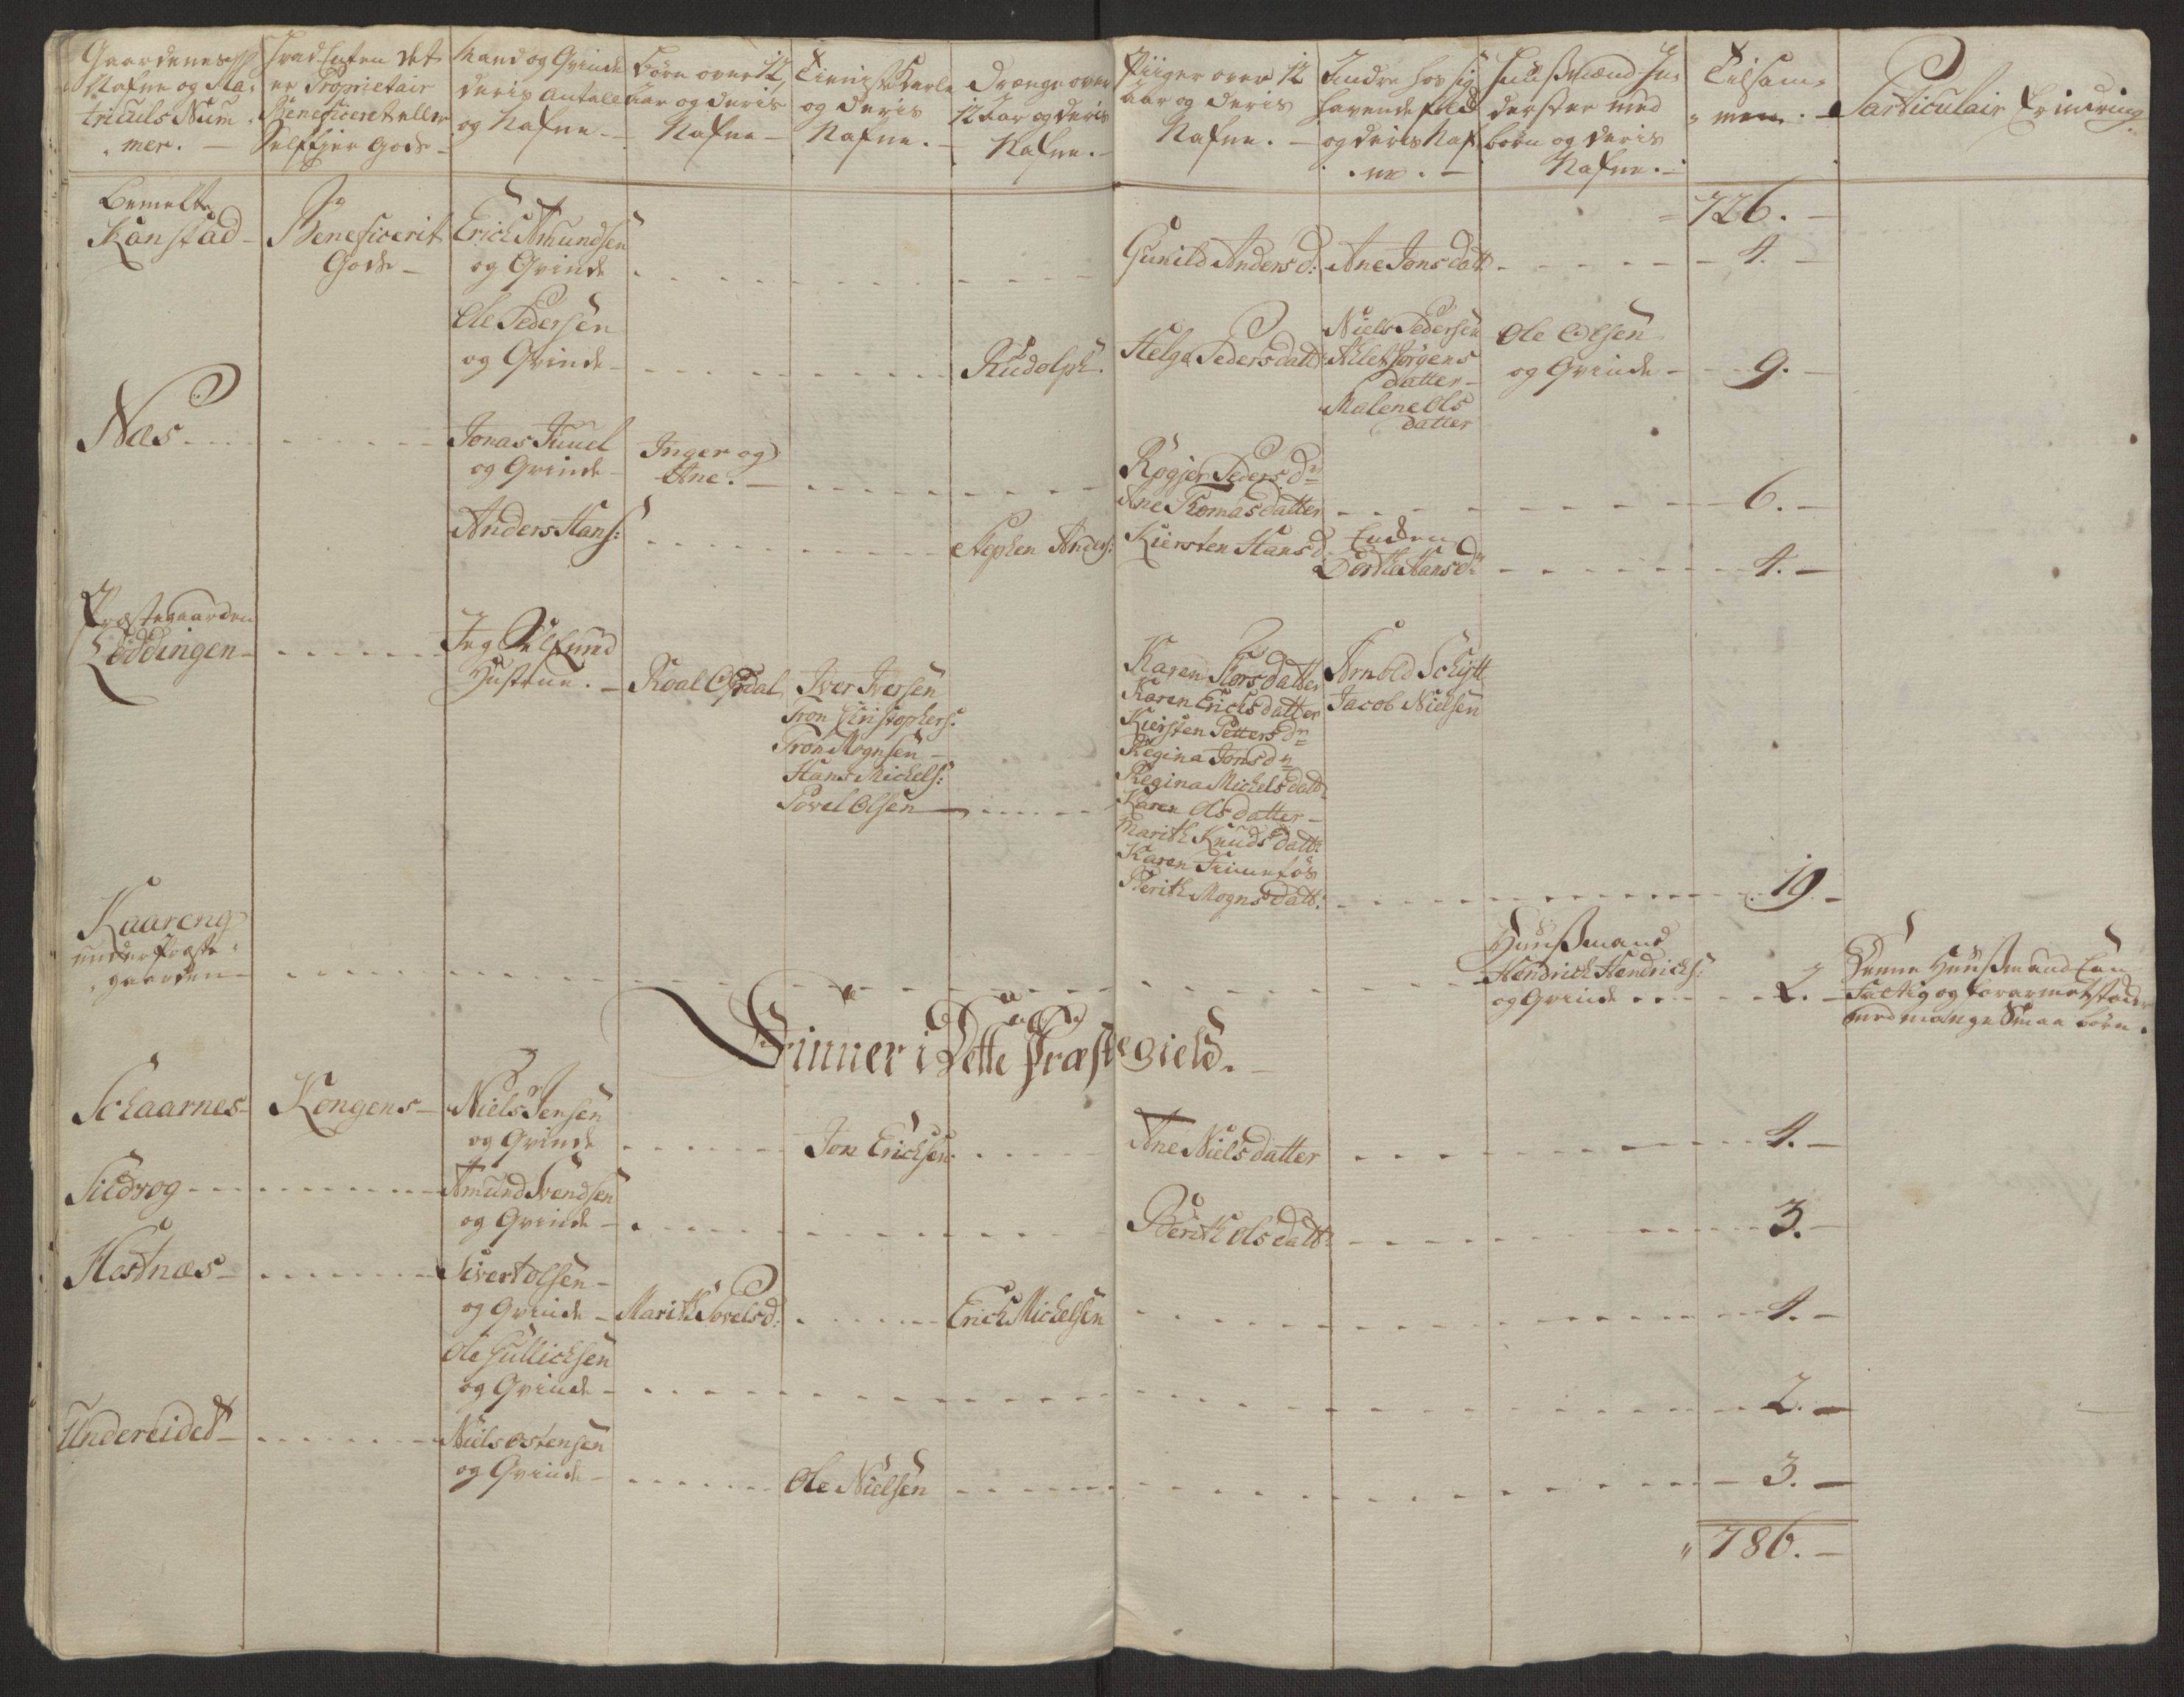 Gaardenes
Nafne og Ma„
triculs Num„
mer. —
Hvad Enten det
er Proprietair
Beneficeret eller
Selfejer Gods —
Mand og Qvinde
deris Antall
og Nafne —
Børn over 12
Aar og deris
Nafne —
Tieniste Karle
og deris
Nafne. —
Drænge over
12 Aar og deris
Nafne. —
Piiger over 12
Aar og deris
Nafne. —
Andre hos sig
havende folk
og deris Naf
ne. —
Huusmænd In„
derster med
børn og deris
Nafne. —
Tilsam„
men. —
Particulair Erindring
726. —
Bemelte
Kanstad —
Beneficerit
Gods —
Erich Amundsen
og Qvinde
Gunild Anders d:
Ane Jons datt
4. —
Ole Pedersen
og Qvinde —
Rudolph.
Helga Pedersdatt:
Niels Pedersen
Allet Jørgens
datter —
Malene Ols
datter
Ole Olsen
og Qvinde —
9. —
Næs
Jonas Juuel
og Qvinde —
Inger og
Ane. —
Røgjer Peders dr
Ane Thomasdatter
6. —
Anders Hans:
Stephen Anders:
Kiersten Hans d.
Enken
Dorthe Hans dr
4. —
Præstegaarden
Løddingen —
Jeg Self med
Hustrue. —
Roal Opdal
Iver Iversen
Tron Christophers:
Tron Mognsen —
Hans Michels:
Povel Olsen —
Karen Thorsdatter
Karen Erichsdatter
Kiersten Petters dr
Regina Jons dr
Regina Michels datt
Karen Olsdatter —
Marith Knuds datt:
Karen
Berith Mogns datt:
Arnold Schytt
Jacob Nielsen
19. —
Kaareng
under Præste„
gaarden —
Huusmand
Hendrich Hendrichs:
og Qvinde
2. —
Denne Huusmand Er
fattig og forarmet sidder
med mange Smaa børn.
Finner i Dette Præstegield. —
Schaarnes —
Kongens —
Niels Jensen
og Qvinde
Jon Erichsen
Ane Nielsdatter
4. —
Sildvog
Amund Svendsen
og Qvinde —
Berith Ols datt:
3. —
Hestnæs —
Sivert Olsen —
og Qvinde —
Marith Povelsd:
Erich Michelsen
4. —
Ole Gullichsen
og Qvinde —
2. —
Undereidet —
Niels Ostensen
og Qvinde —
Ole Nielsen
3. —
786. —